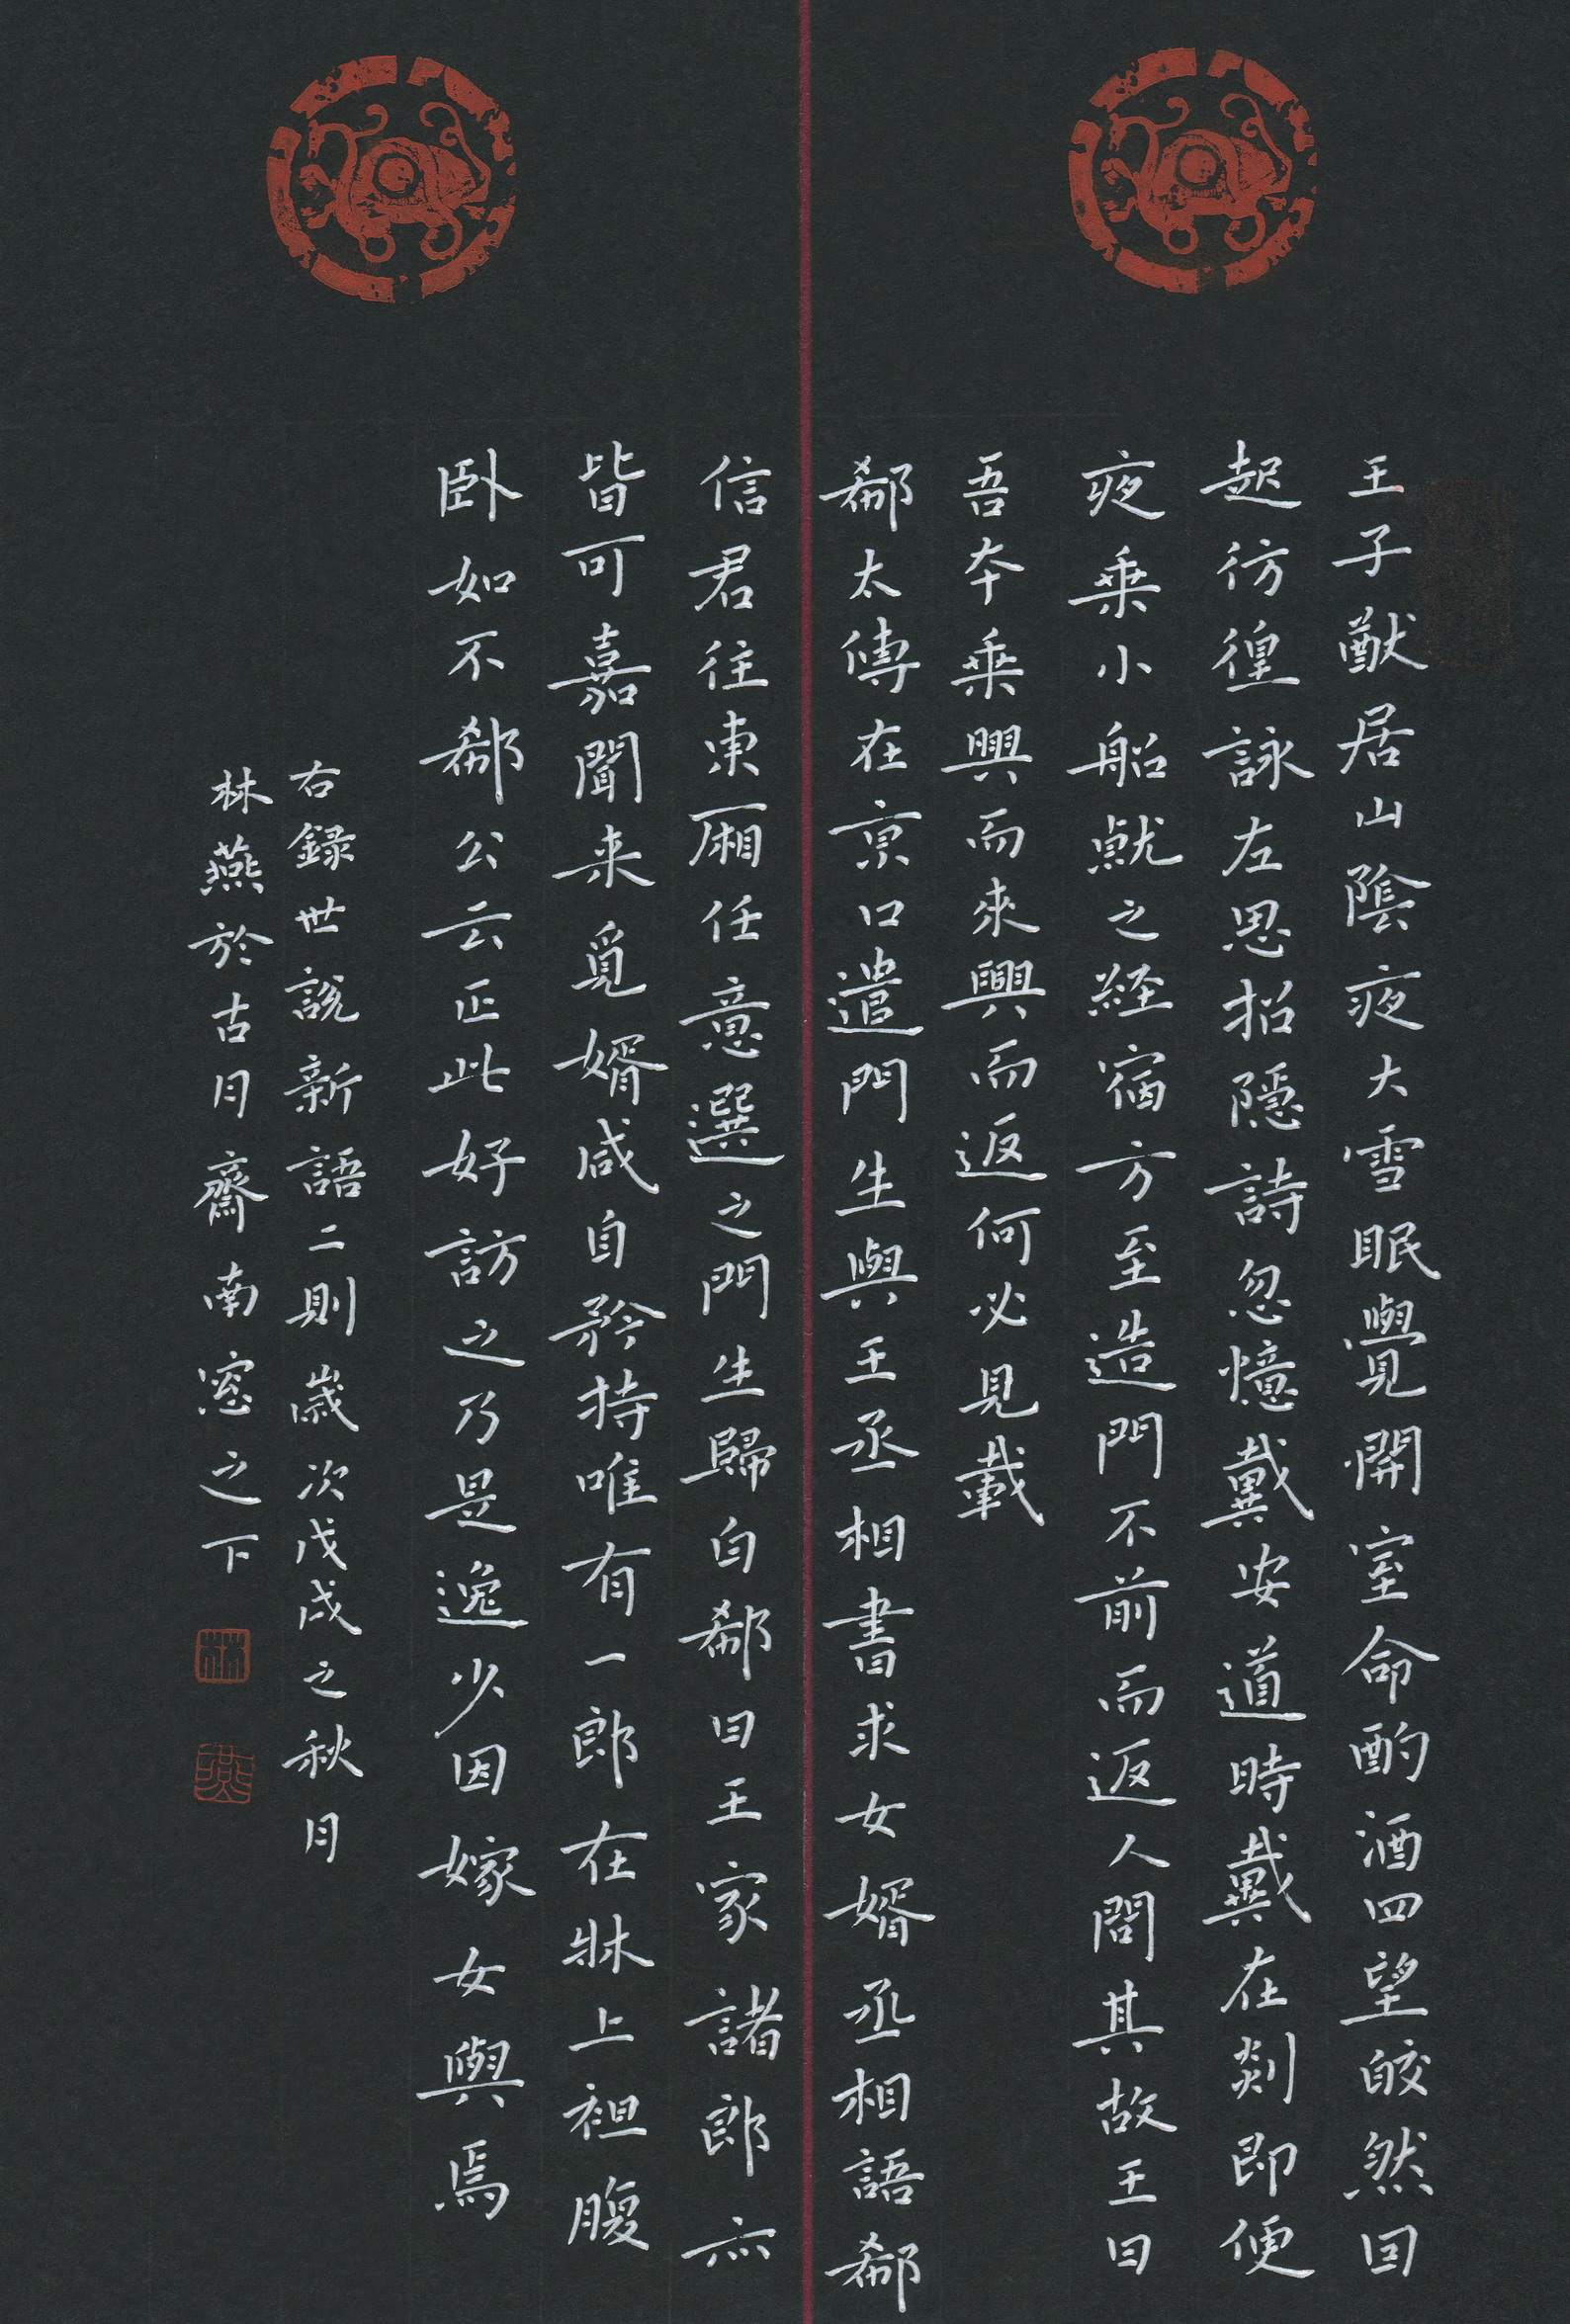 王子猷居山陰夜大雪眠覺開室命酌酒四望皎然因
起彷徨詠左思招隱詩忽憶戴安道時戴在剡即便
夜乘小船就之經宿方至造門不前而返人問其故王曰
吾本乘興而來興而返何必見戴
郗太傅在京口遣門生與王丞相書求女婿丞相語郗
信君往東廂任意選之門生歸白郗曰王家諸郎亦
皆可嘉聞来覓婿咸自矜持唯有一郎在牀上袒腹
卧如不郗公云正此好訪之乃是逸少因嫁女與焉
右録世説新語二則歲次戊戌之秋月
林燕於古月齋南窓之下
林
燕